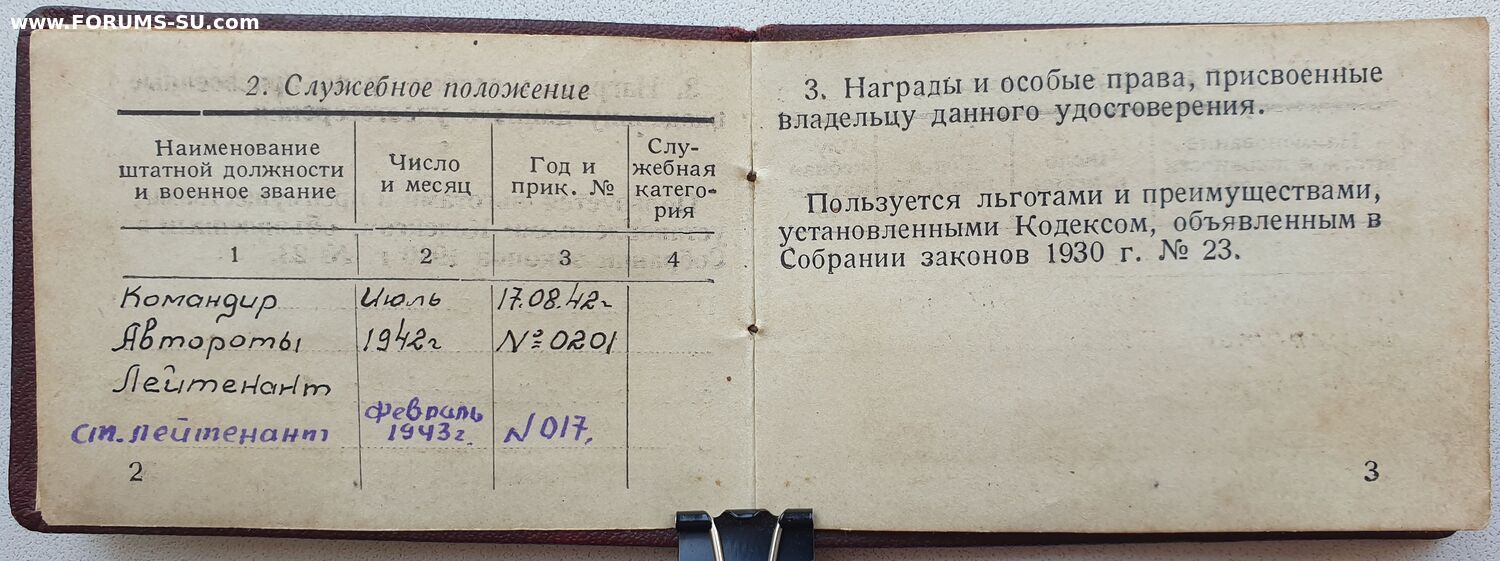 www.FORUMS-SU.com
2. Служебное положение
Наименование
штатной должности
и военное звание
Число
и месяц
Год и
прик. №
Слу-
жебная
катего-
рия
1 2 3 4
Командир Июль 17.08.42г
Автороты 1942г № 0201
Лейтенант
ст. лейтенант февраль 1943г. N 017.
2
3. Награды и особые права, присвоенные
владельцу данного удостоверения.
Пользуется льготами и преимуществами,
установленными Кодексом, объявленным в
Собрании законов 1930 г. № 23.
3